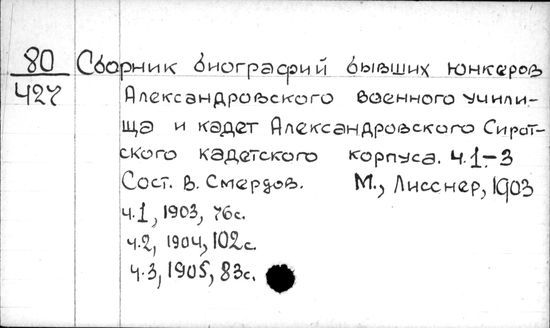 80 Сборник биографий бывших юнкеров
427 Александровского военного учили-
ща и кадет Александровского Сирот-
ского кадетского корпуса. ч.1-3
Сост. В. Смердов. М., Лисснер, 1903
ч.1, 1903, 76с.
ч.2, 1904, 102с.
ч.3, 1905, 83с.